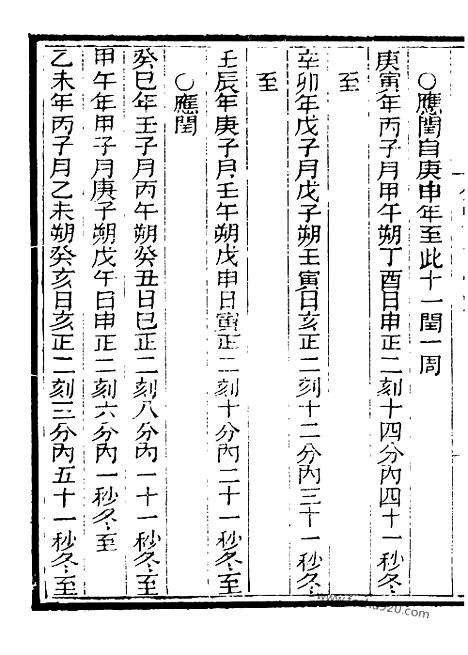 ○應閏自庚申年至此十一閏一周
庚寅年丙子月甲午朔丁酉日申正二刻十四分內四十一秒冬
至
辛卯年戊子月戊子朔壬寅日亥正二刻十二分內三十一秒冬
至
壬辰年庚子月壬午朔戊申日寅正二刻十分內二十一秒冬至
○應閏
癸巳年壬子月丙午朔癸丑日巳正二刻八分內一十一秒冬至
甲午年甲子月庚子朔戊午日申正二刻六分內一秒冬至
乙未年丙子月乙未朔癸亥日亥正二刻三分內五十一秒冬至